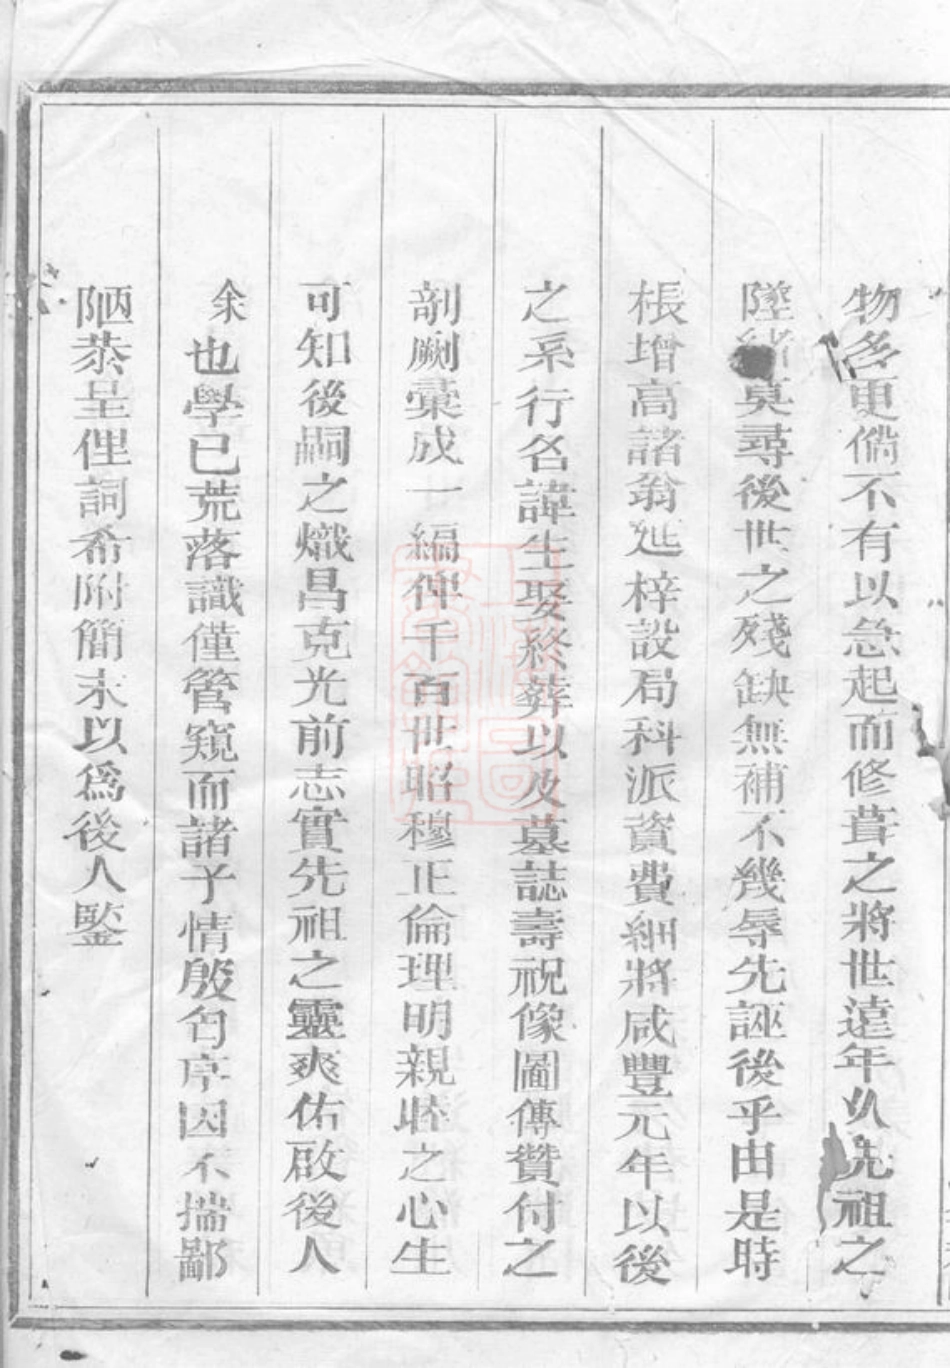 物多更倘不有以急起而修葺之將世遠年久先祖之
墜緒莫尋後世之殘缺無補不幾辱先誣後乎由是時
棖增高諸翁延梓設局科派資費細將咸豐元年以後
之系行名諱生娶終葬以及墓誌壽祝像圖傳贊付之
剖劂彙成一編俾千百世昭穆正倫理明親睦之心生
可知後嗣之熾昌克光前志實先祖之靈爽佑啟後人
余也學已荒落識僅管窺而諸子情殷匄序因不揣鄙
陋恭呈俚詞希附簡末以爲後人鍳